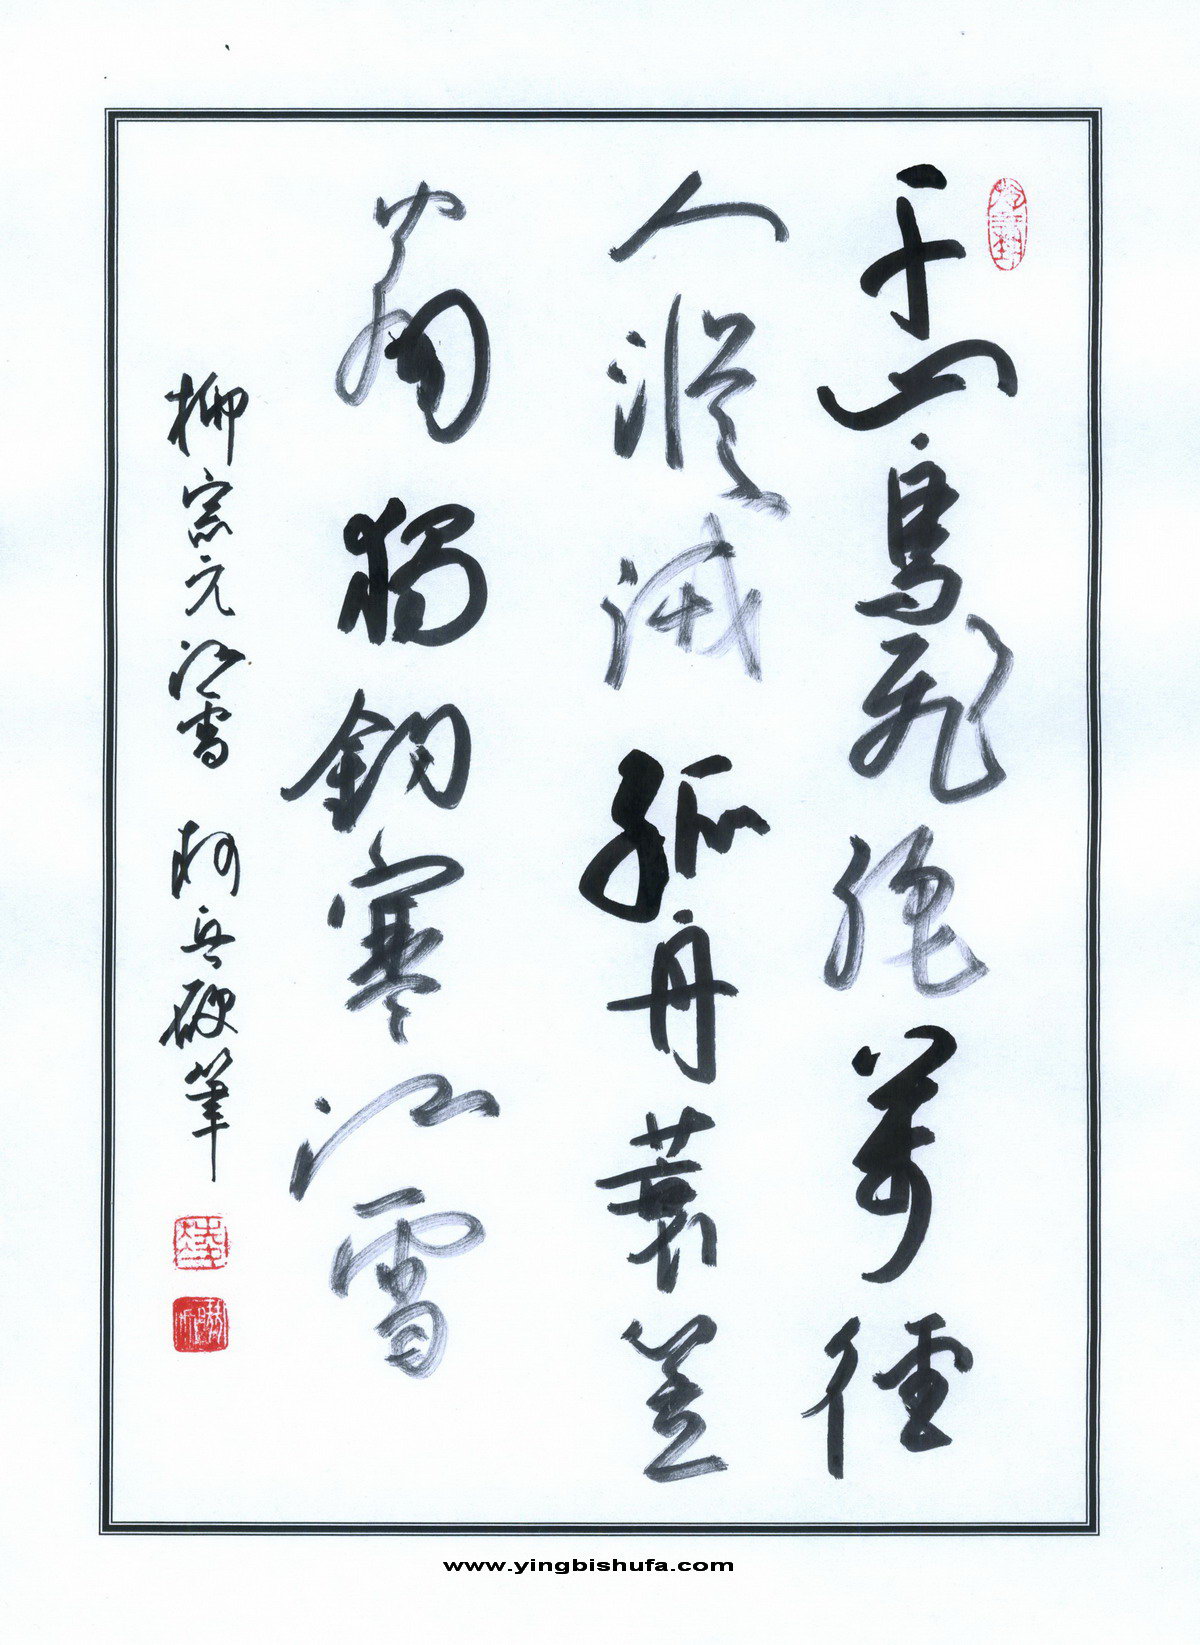 千山鳥飛絕萬徑
人蹤滅孤舟蓑笠
翁獨釣寒江雪
柳宗元江雪 柯兵硬筆
www.yingbishufa.com